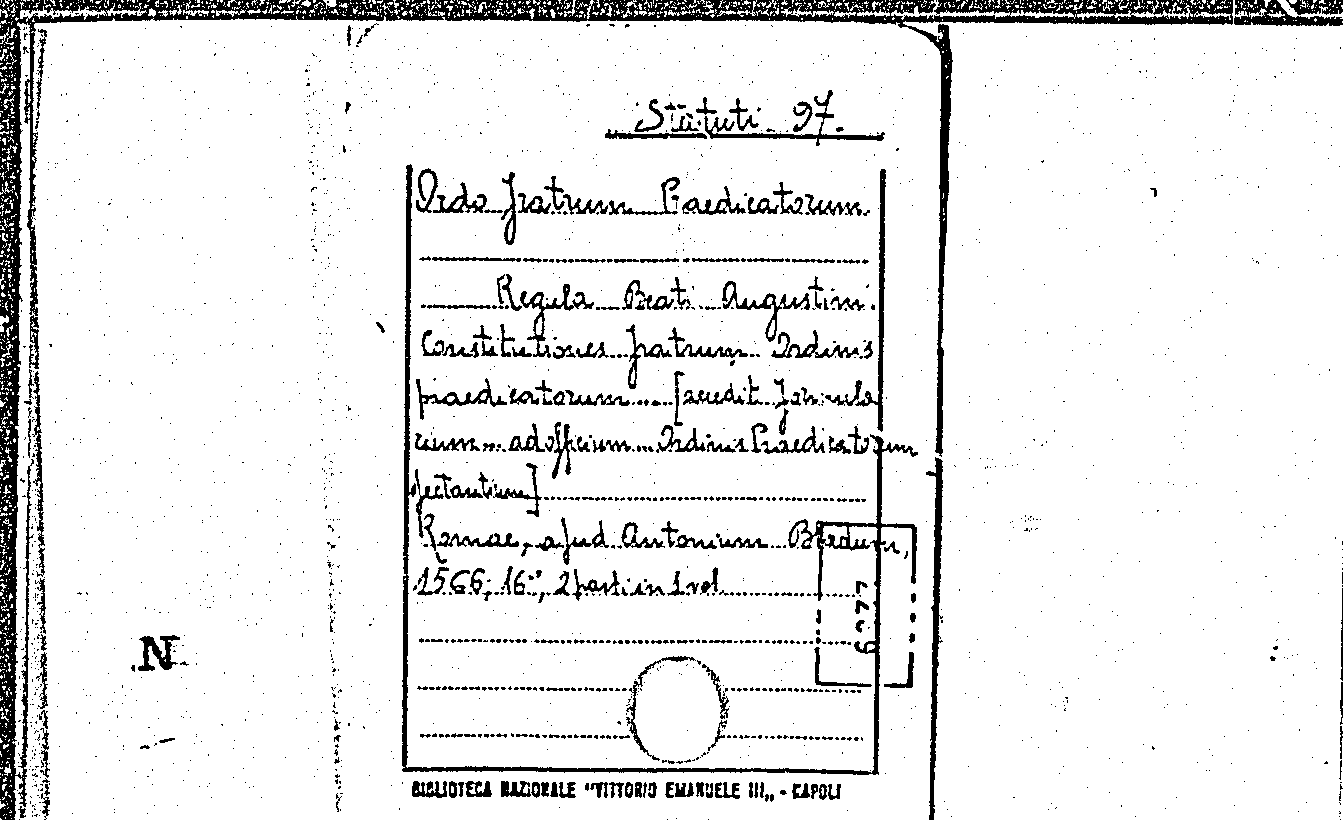 Statuti 97.
Ordo Fratrum Praedicatorum
Regula Beati Augustini.
Constitutiones Fratrum Ordinis
praedicatorum... [accedit Formula
rium... ad officium... Ordinis Praedicatorum
spectantium]
Romae, apud Antonium Bladum,
1566; 16°, 2 parti in 1 vol.
N
BIBLIOTECA NAZIONALE "VITTORIO EMANUELE III„ - NAPOLI